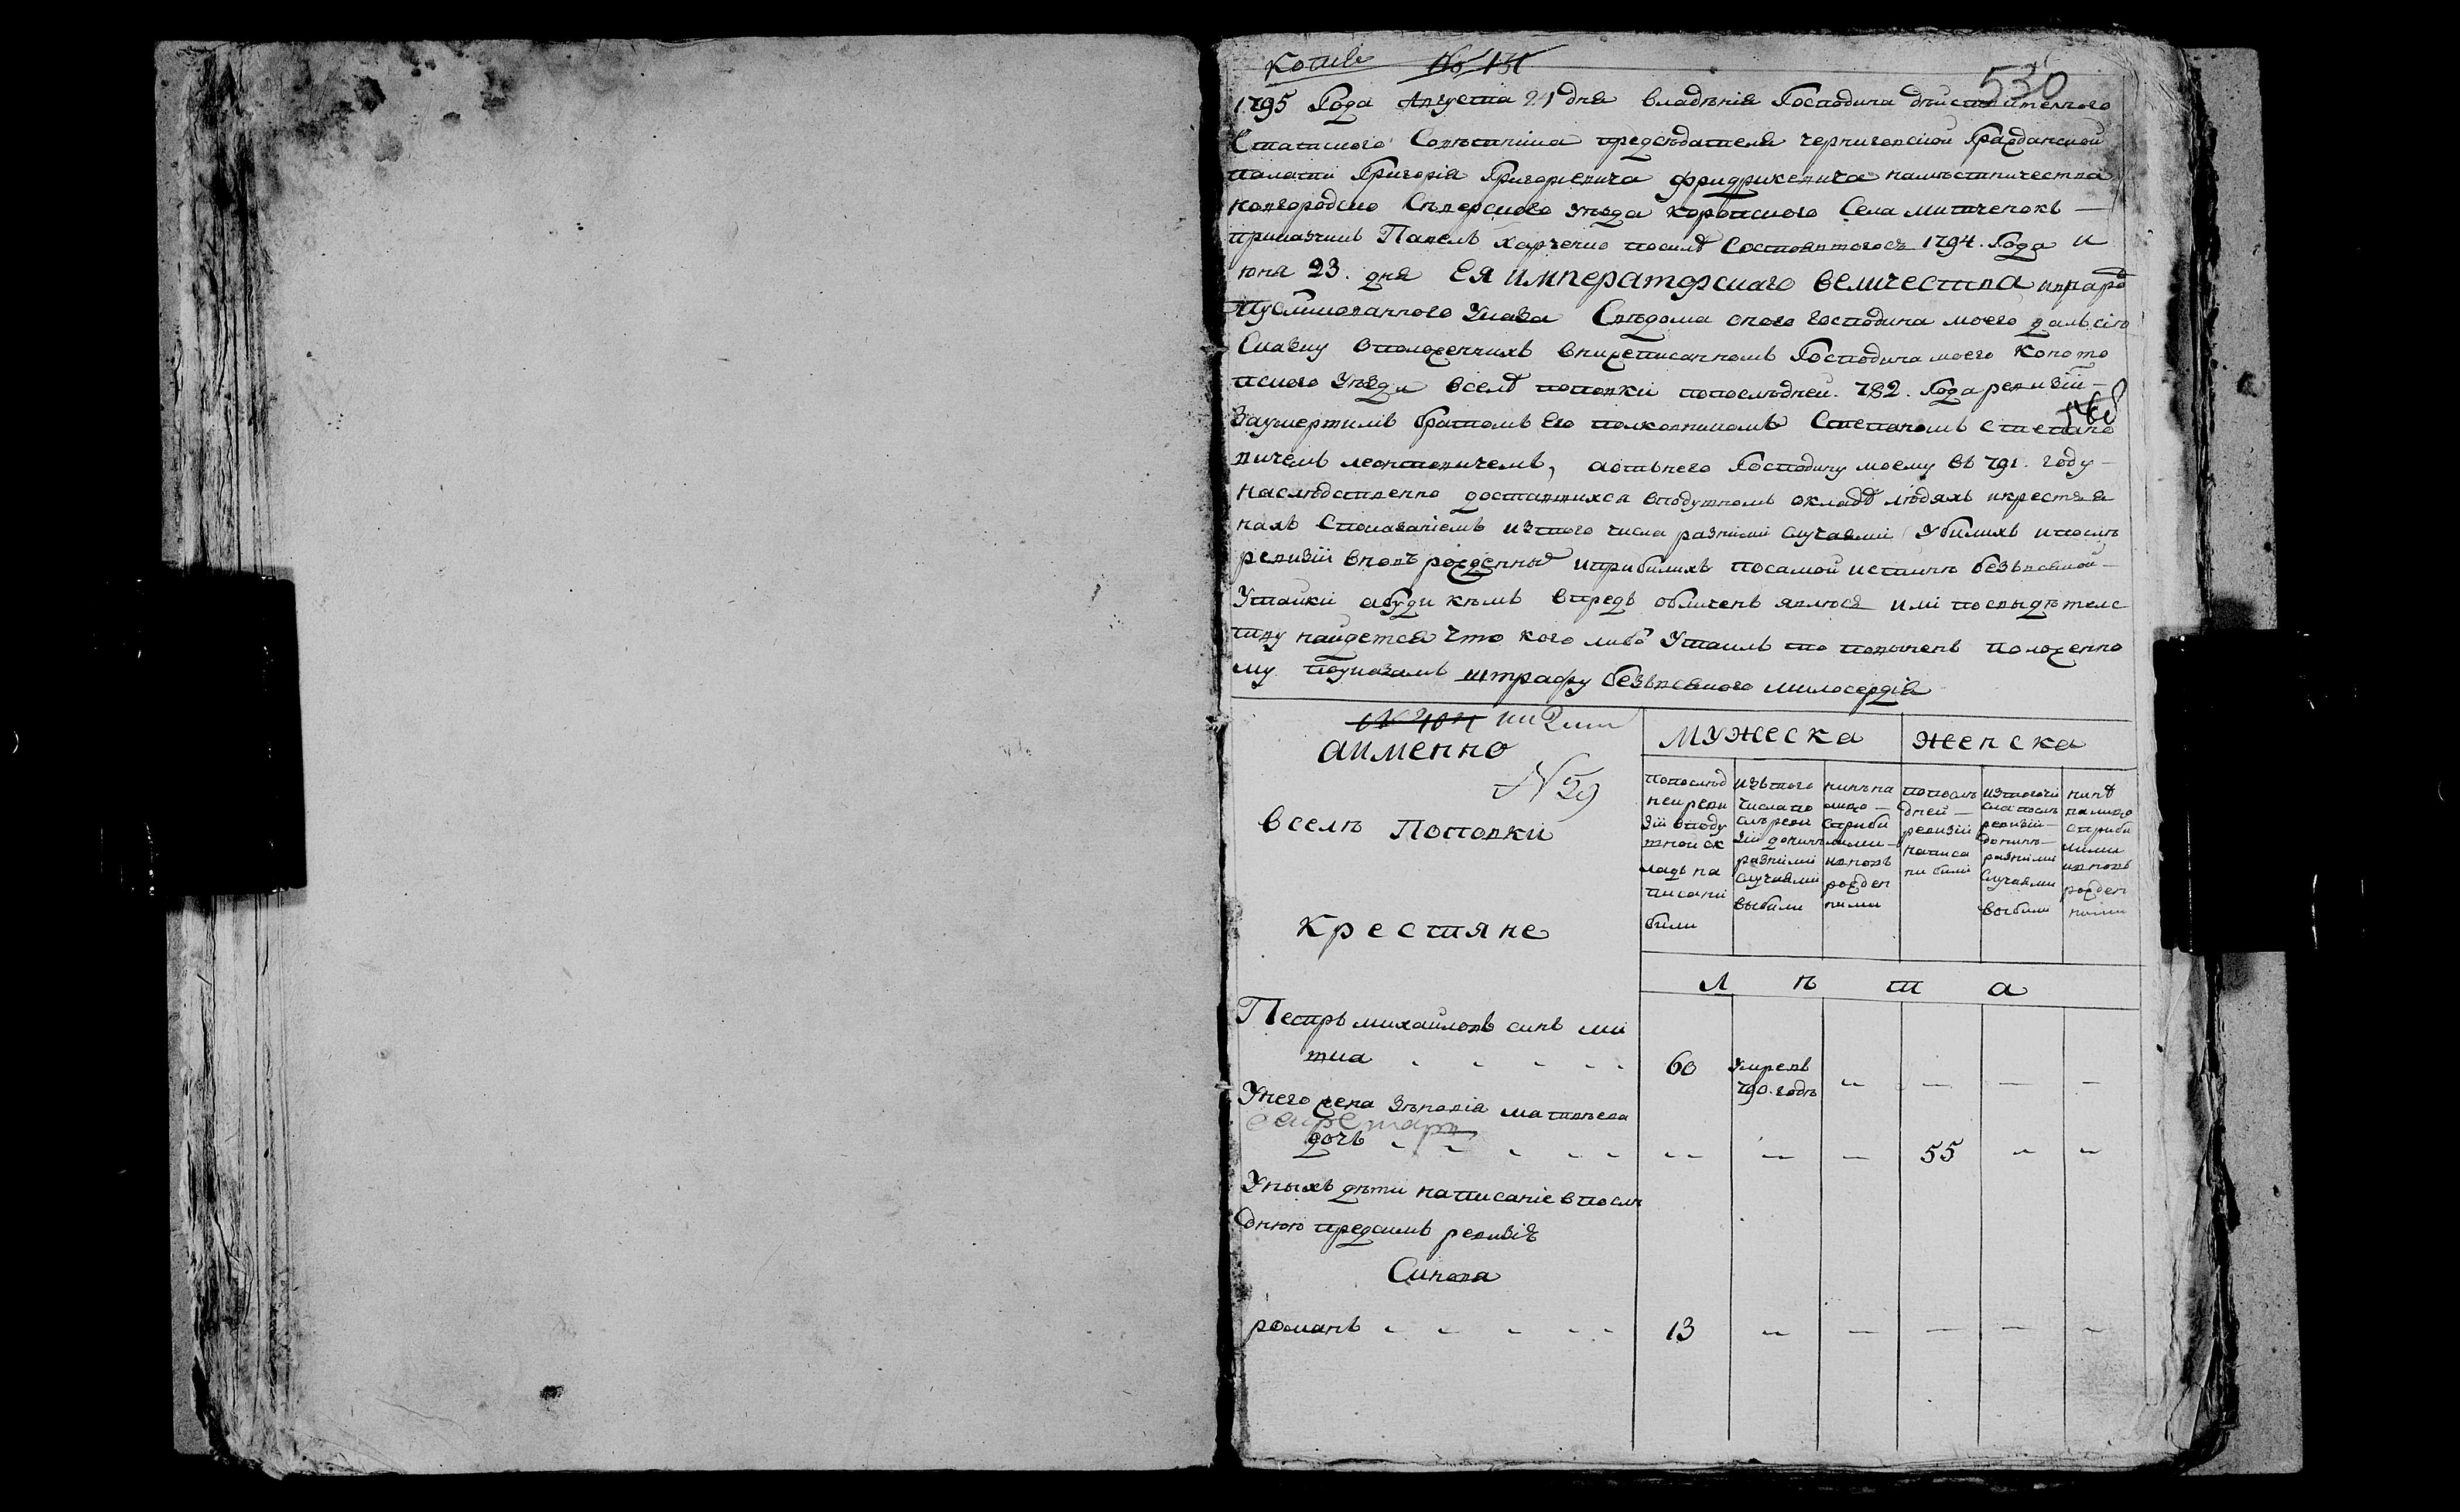 Копие № 131
530
1795 Года Августа 21 дня владѣнія Господина дѣиствителного
Статского Совѣтника предсѣдателя черниговской Гражданской
палати Григорія Григориевича фридрикевича намѣстничества
новгородско Сѣверского уѣзда коропского Села митченокъ —
приказчик Павелъ харченко посилѣ Состоявшогось 1794. Года и
юня 23. дня Ея императорскаго величества
публикованного Указа Свѣдома оного господина моего далъ сію
Сказку вположеннихъ внижеписанномъ Господина моего коното
пского уѣзда вселѣ поповки попослѣдней. 782. Года ревизій —
Заумершимъ братомъ Его полковникомъ Степаномъ Степано
вичемъ леонтовичемъ, аотънего Господину моему въ 791. году —
наслѣдственно доставшихся вподушномъ окладѣ людяхъ икрестья
нахъ Споказаніемъ изтого числа разними случаями Убилихъ ипослѣ
ревизій вновъ рожденнихъ иприбилихъ посамой истиннѣ безвсякой —
Утайки абуди кѣмъ впредъ обличенъ явлюся или посвыдѣтелс
тву найдется что кого либо Утаилъ то повыненъ положенно
му поуказамъ штрафу безвсякого милосердія
аименно
N 29
вселѣ Поповки
крестияне
мужеска женска
попослѣд
ней реви
зій вподу
шной ок
ладъ на
писани
били
изътого
числа по
слѣ реви
зій донинѣ
разними
случаями
выбили
нинѣ на
лицо —
сприби
лими —
ивновъ
рожден
ними
попослѣ
дней —
ревизій
написа
ни били
изтогочи
сла послѣ
ревизій —
донинѣ —
разними
случаями
выбили
нинѣ
налицо
сприби
лими
ивновъ
рожден
ними
л ѣ т а
Петръ михайловъ синъ ми
тка 60 Умреве
790. годѣ
Унего жена Зѣновія матвѣева
дочь 55
Уныхъ дѣти написаніе впослѣ
днюю предсимъ ревизію
Синова
романъ 13